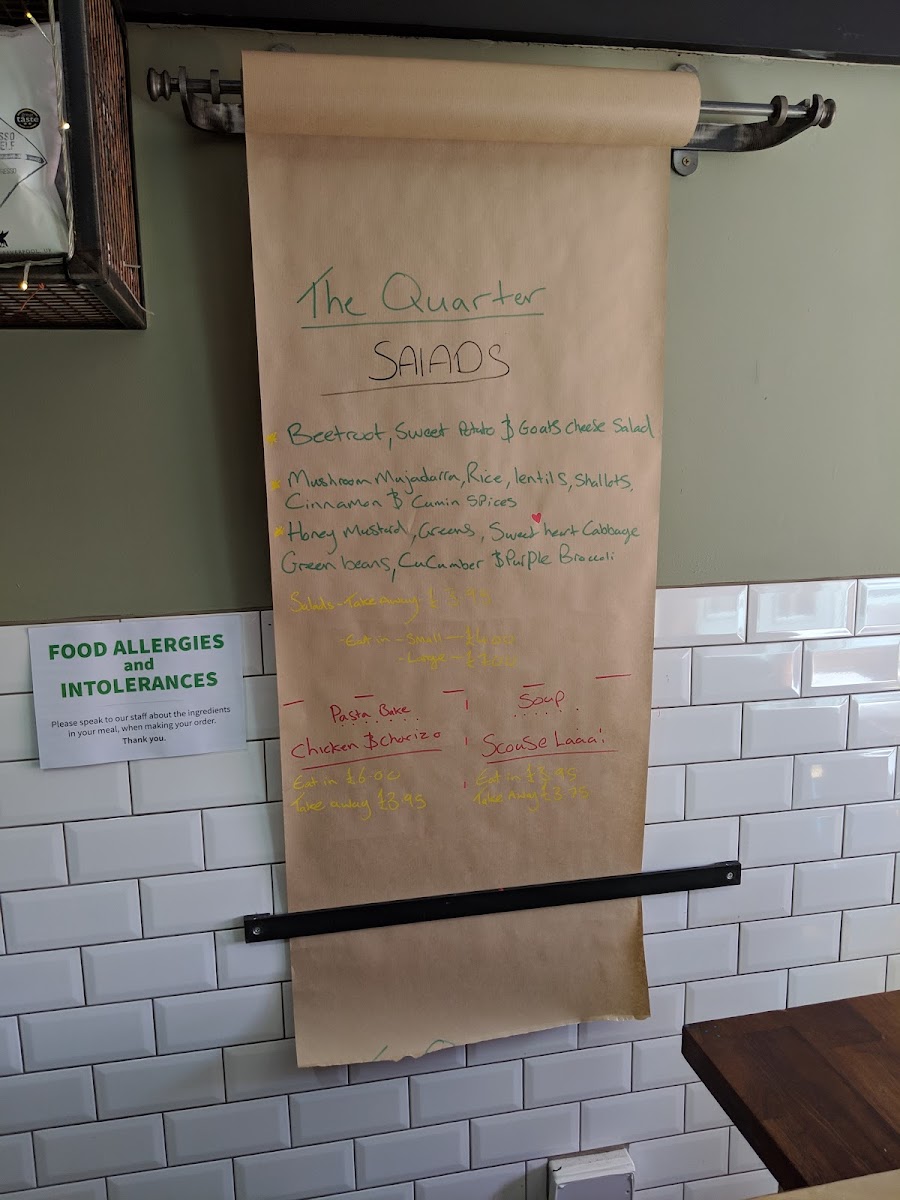 The Quarter
SAlADS
Beetroot, Sweet Potato & Goats Cheese Salad
Mushroom Mujadarra, Rice, lentils, Shallots,
Cinnamon & Cumin Spices
Honey Mustard, Greens, Sweet heart Cabbage
Green beans, CuCumber & Purple Broccoli
Salads - Take Away £3.95
- Eat in - Small - £4.00
- Large -
Pasta Bake
Soup
Chicken & Chorizo
Scouse Laaa!
Eat in £6.00
Eat in £3.95
Take away £3.95
Take Away
FOOD ALLERGIES
and
INTOLERANCES
Please speak to our staff about the ingredients
in your meal, when making your order.
Thank you.
taste